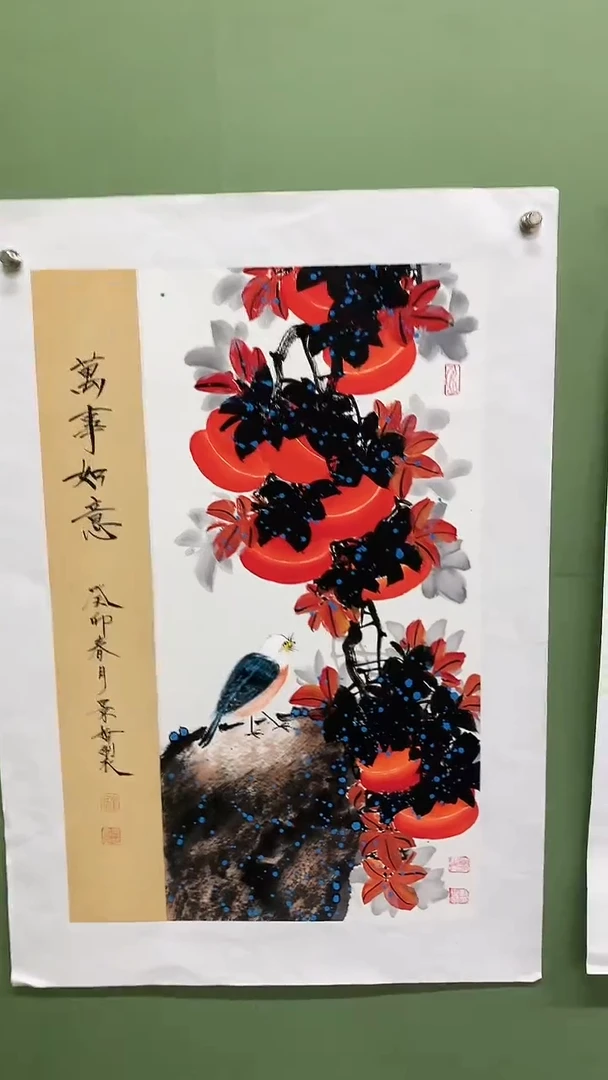 萬事如意
癸卯春月